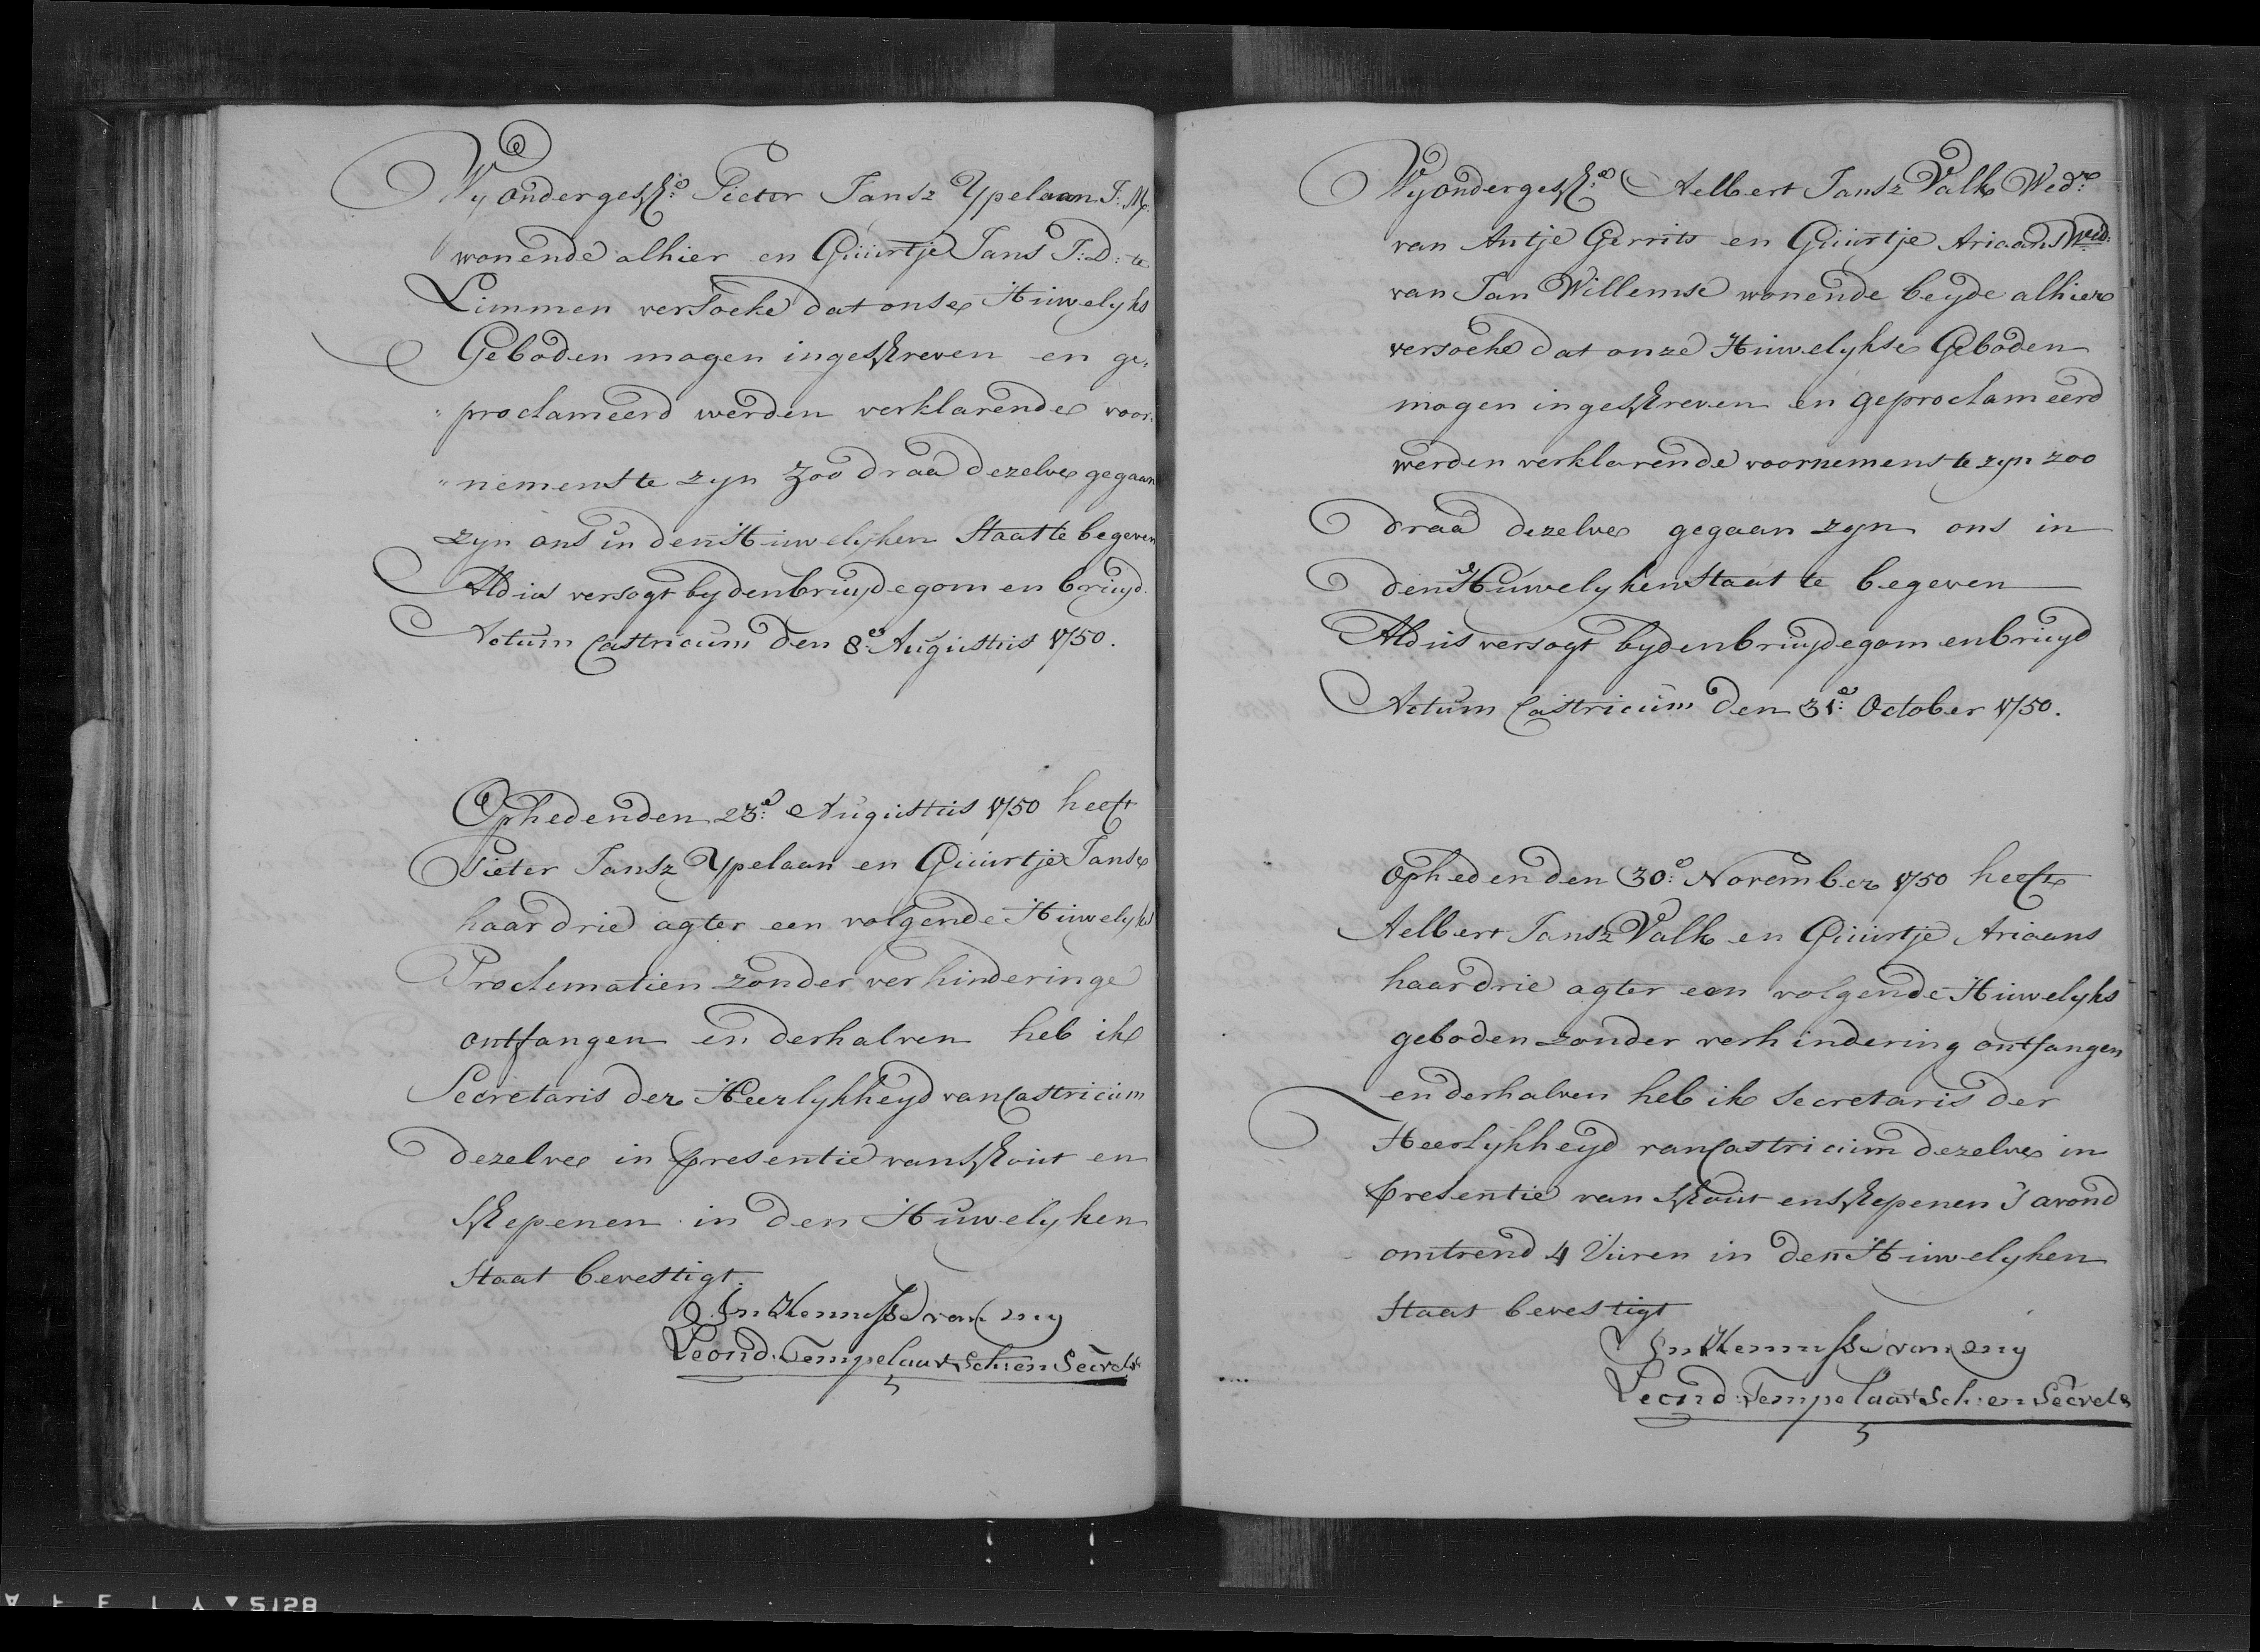 Wy ondergesch:e Pieter Jansz Ypelaan J:M:
wonende alhier en Guurtje Jans J:D: te
Limmen versoeke dat onse Huwelyks
Geboden mogen ingeschreven en ge„
„proclameerd werden verklarende voor„
„nemens te zyn zoo draa dezelve gegaan
zyn ons in den Huwelyken Staat te begeven
Aldus versogt by den bruydegom en bruyd.
Actum Castricum den 8:e Augustus 1750.
Op heden den 23:e Augustus 1750 heeft
Pieter Jansz Ypelaan en Guurtje Janse
haar drie agter een volgende Huwelyks
Proclematien zonder verhinderinge
ontfangen en derhalven heb ik
Secretaris der Heerlykheyd van Castricum
dezelve in presentie van Schout en
Schepenen in den Huwelyken
Staat bevestigt.
In Kennisse van my
Leond: Tempelaar Sch: en Secrets
Wy ondergesch:e Aelbert Jansz Valk Wed:r
van Antje Gerrits en Guurtje Ariaans Wed:
van Jan Willemse wonende beyde alhier
versoeke dat onze Huwelykse Geboden
mogen ingeschreven en geproclameerd
werden verklarende voornemens te zyn zoo
draa dezelve gegaan zyn ons in
den Huwelyken Staat te begeven
Aldus versogt by den bruydegom en bruyd
Actum Castricum den 31:e October 1750.
Op heden den 30:e November 1750 heeft
Aelbert Jansz Valk en Guurtje Ariaans
haar drie agter een volgende Huwelyks
geboden zonder verhindering ontfangen
en derhalven heb ik Secretaris der
Heerlykheyd van Castricum dezelve in
presentie van Schout en Schepenen 's avond
omtrend 4 Uuren in den Huwelyken
Staat bevestigt
In Kennisse van my
Leond: Tempelaar Sch: en Secrets
5128